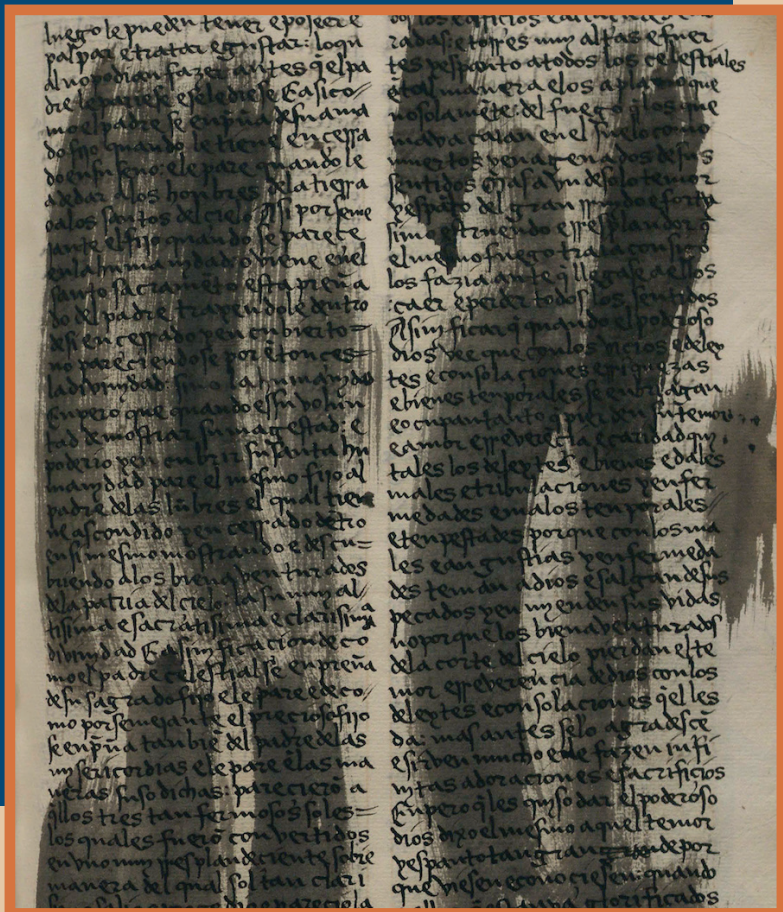 luego le pueden tener e poseer e
palpar e tratar e gustar: lo qu
al no podian fazer antes q̃ el pa
dre le pariese e se le diese E asi co
mo el padre se enpña de su ama
do fijo quando le tiene encerra
do en su seno: e le pare quando le
a de dar a los honbres de la tierra
o a los santos del cielo Asi por seme
jante el fijo quando se parece
en la humanidad o viene en el
santo sacramẽto esta preña
do del padre trayendole dentro
de si encerrado y encubierto
no pareciendose por estonces
la divinidad: sino la humanidad
Enpero que quando es su volun
tad demostrar su magestad: e
poderio y encubrir su santa hu
manydad pare el mesmo fijo al
padre de las lũbres el qual tien
ne ascondido y encerrado dẽtro
en si mesmo mostrando e descu
briendo a los bienaventurados
de la patria del cielo: la suma al
tisima e sacratisima e clarisima
divinidad E a sinificacion de co
mo el padre celestial se enpreña
de su sagrado fijo e le pare e de co
mo por semejante el precioso fijo
se enpña tanbiẽ del padre de las
mysericordias e le pare e las ma
neras suso dichas: parecierõ a
q̃llos tres tan fermosos soles
los quales fuerõ convertidos
en uno muy resplandeciente sobre
manera del qual sol tan clari
radas: e torres muy altas e fuer
tes y espanto a todos los celestiales
e tal manera e los aplazo que
no solamẽte: del fuego q̃ los que
mava caian en el suelo como
muertos y enagenados de sus
sentidos Mas aun de solo temor
y espãto del gran mundo e forty
simo estruendo e resplandor q̃
el mesmo fuego traia consigo
los fazia ante q̃ llegase a ellos
caer e perder todos los sentidos
A sinificar q̃ quando el poderoso
dios vee que con los vicios e deley
tes e consolaciones e riquezas
e bienes tenporales se enbriagan
e ocupan tanto q̃ pierden su temor
e amor e reverẽcia e caridad qui
tales los deleytes e bienes e dales
males e tribulaciones y enfer
medades e malos tenporales
e tenpestades porque con los ma
les e angustias y enfermeda
des teman a dios e salgan de sus
pecados y enmyenden sus vidas
no porque los bienaventurados
de la corte del cielo pierdan el te
mor e reverencia de dios con los
deleytes e consolaciones q̃ el les
da: mas antes se lo agradescẽ
e sirven mucho e le fazen infi
nytas adoraciones e sacrificios
Enpero q̃ les quyso dar el poderoso
dios dixo el mesmo aquel temor
y espanto tan grande por
que viesen e conociesen: quando